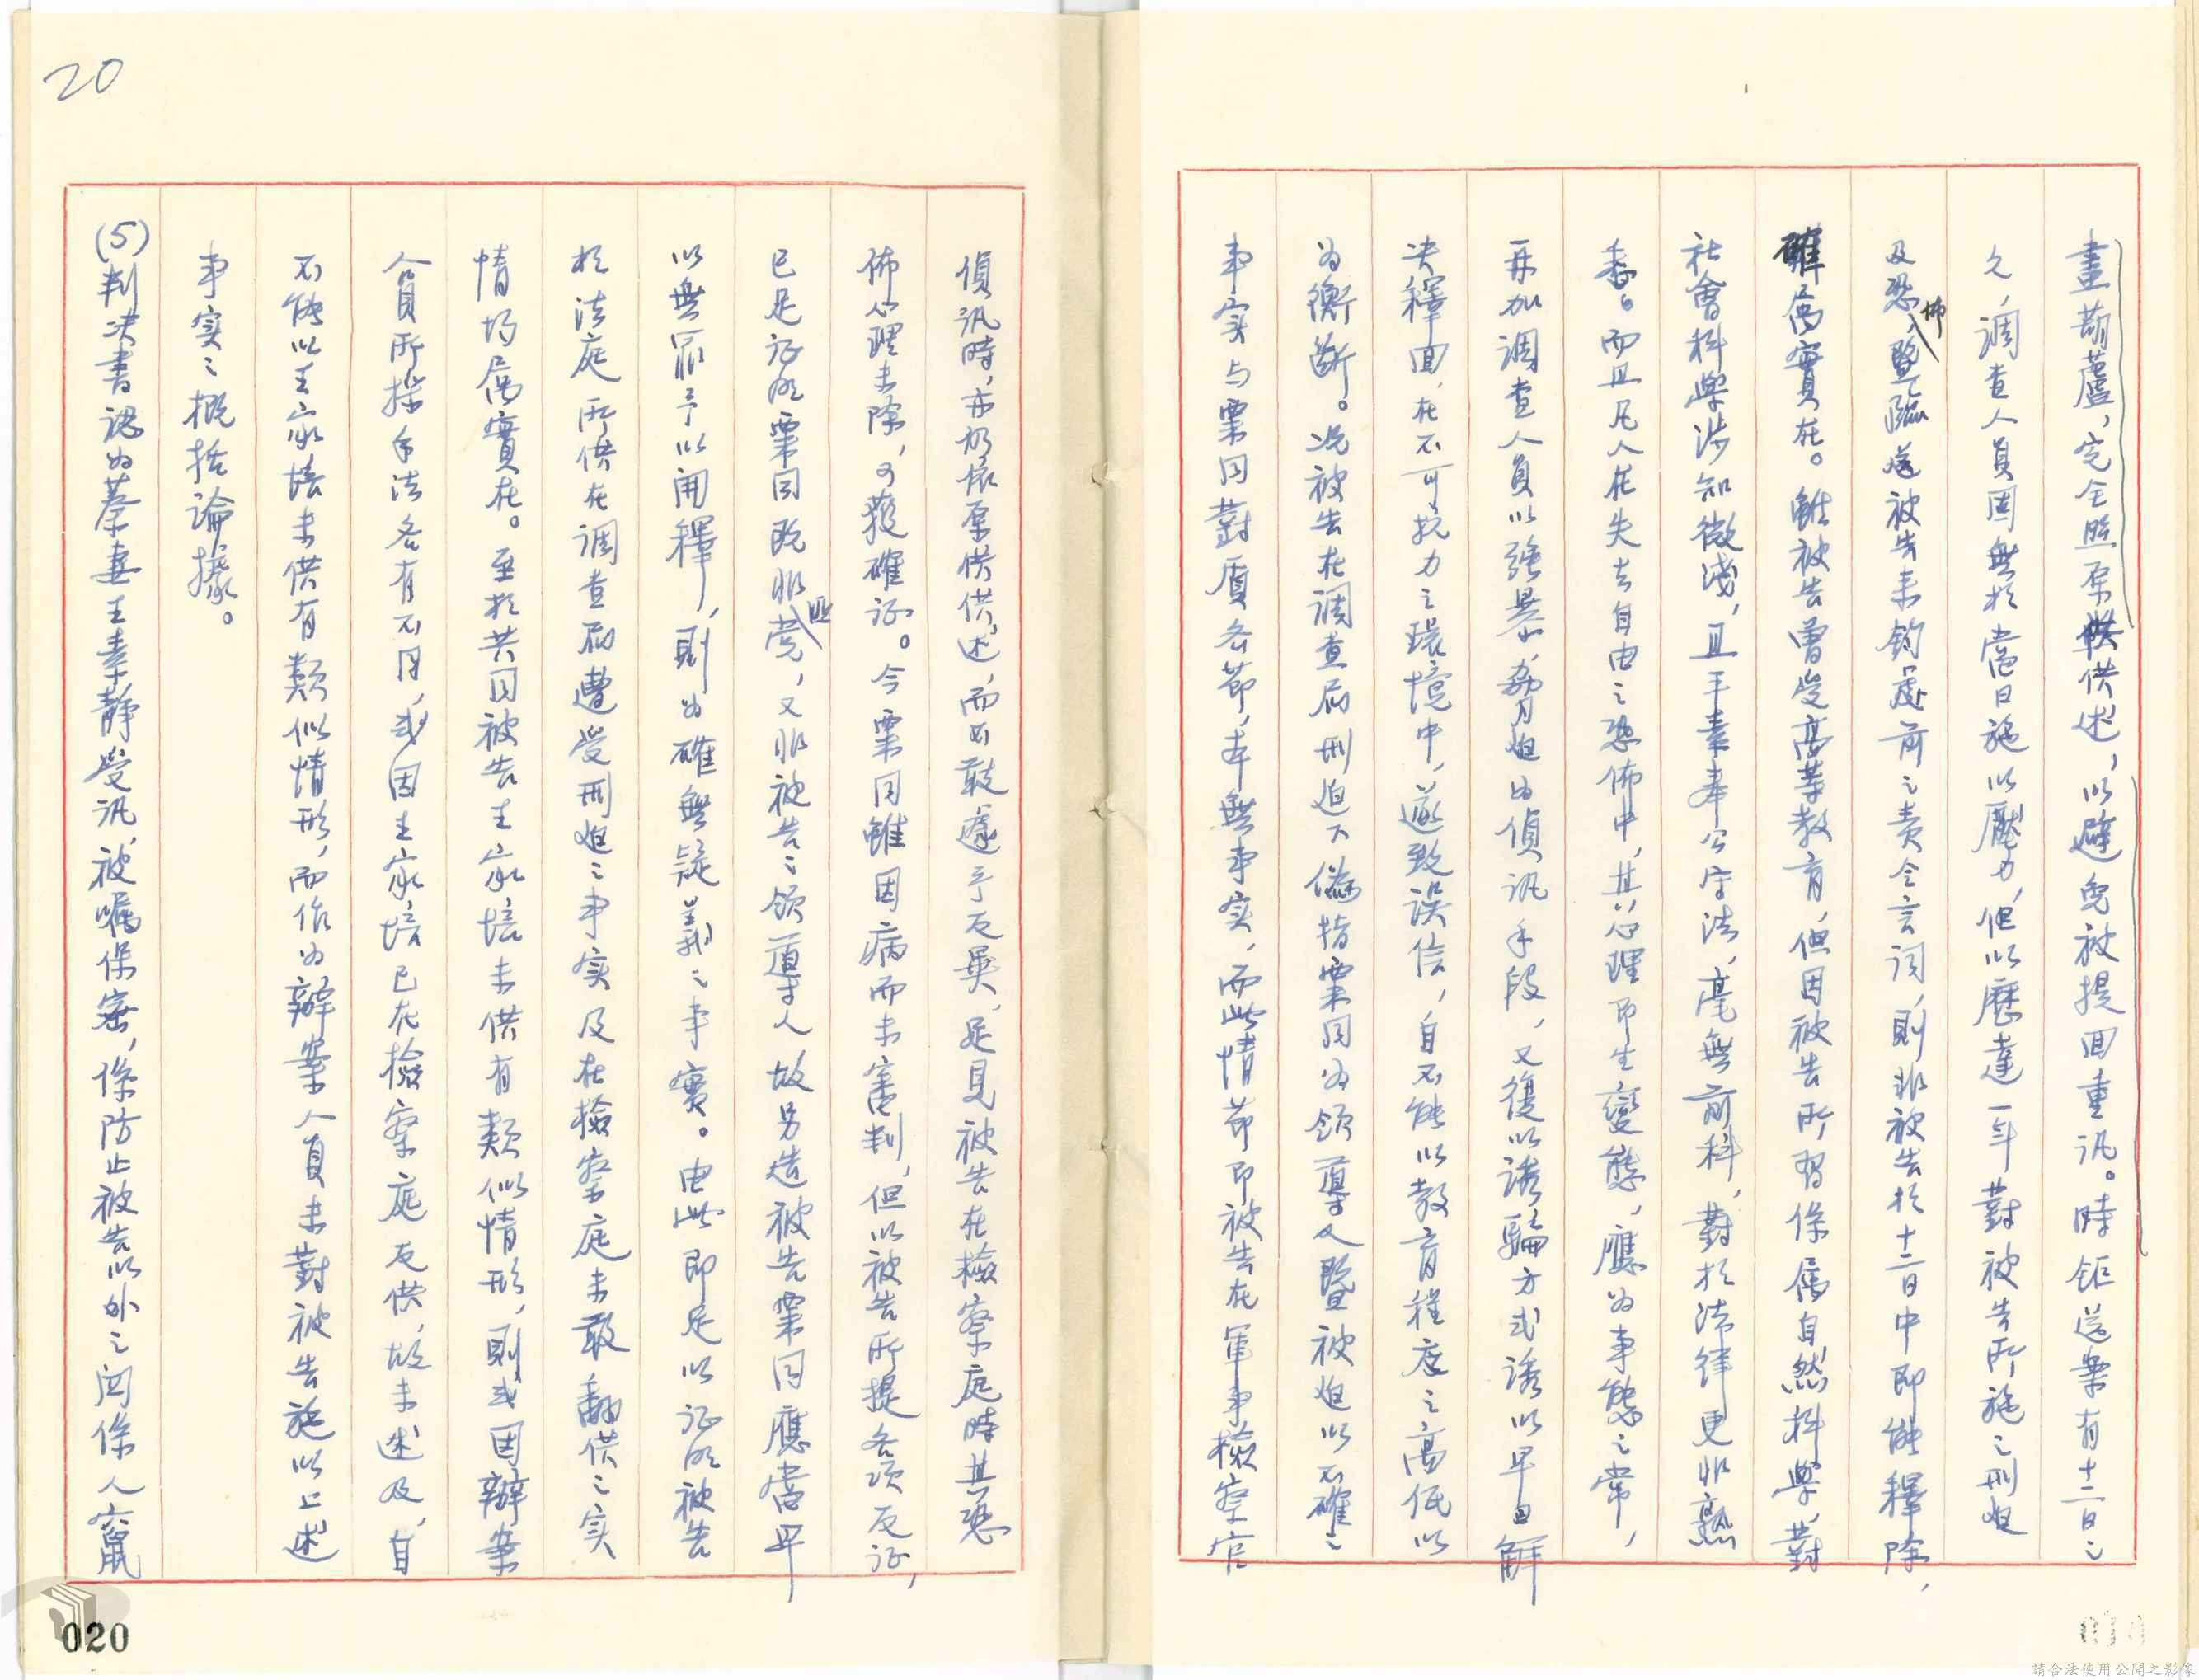 畫葫蘆，完全照原供供述，以避免被提回重訊。時距送案有十二日之
久，調查人員固無於當日施以壓力，但以歷達一年對被告所施之刑迫
及恐怖，暨臨送被告來鈞處前之責令言詞，則非被告於十二日中即能釋除，
確屬實在。雖被告曾受高等教育，但因被告所習係屬自然科學，對
社會科學涉知微淺，且平素奉公守法，毫無前科，對於法律更非熟
悉。而且凡人在失去自由之恐佈中，其心理即生變態，應為事態之常，
再加調查人員以強暴、脅迫為偵訊手段，又復以誘騙方式誘以早日解
決釋回，在不可抗力之環境中，遂致誤信，自不能以教育程度之高低以
為衡斷。況被告在調查局刑迫下偽指粟同為領導人暨被迫以不確之
事实与粟同對質各節，本無事实，而此情節即被告在軍事檢察官
偵訊時，亦仍依原供供述，而不敢遽予反異，足見被告在檢察庭時其恐
佈心理未除，可獲確证。今粟同雖因病而未審判，但以被告所提各項反证，
已足证明粟同既非匪党，又非被告之領導人，故另造被告粟同應當早
以無罪予以開釋，則為確無疑義之事實。由此即足以证明被告
於法庭所供在調查局遭受刑迫之事实及在檢察庭未敢翻供之实
情均屬實在。至於共同被告王家培未供有類似情形，則或因辦案
人員所採手法各有不同，或因王家培已在檢察庭反供，故未述及，自
不能以王家培未供有類似情形，而作為辦案人員未對被告施以上述
事实之概括論據。
(5)判決書認為蔡妻王素靜受訊，被囑保密，係防止被告以外之関係人竄
20
020
請合法使用公開之影像